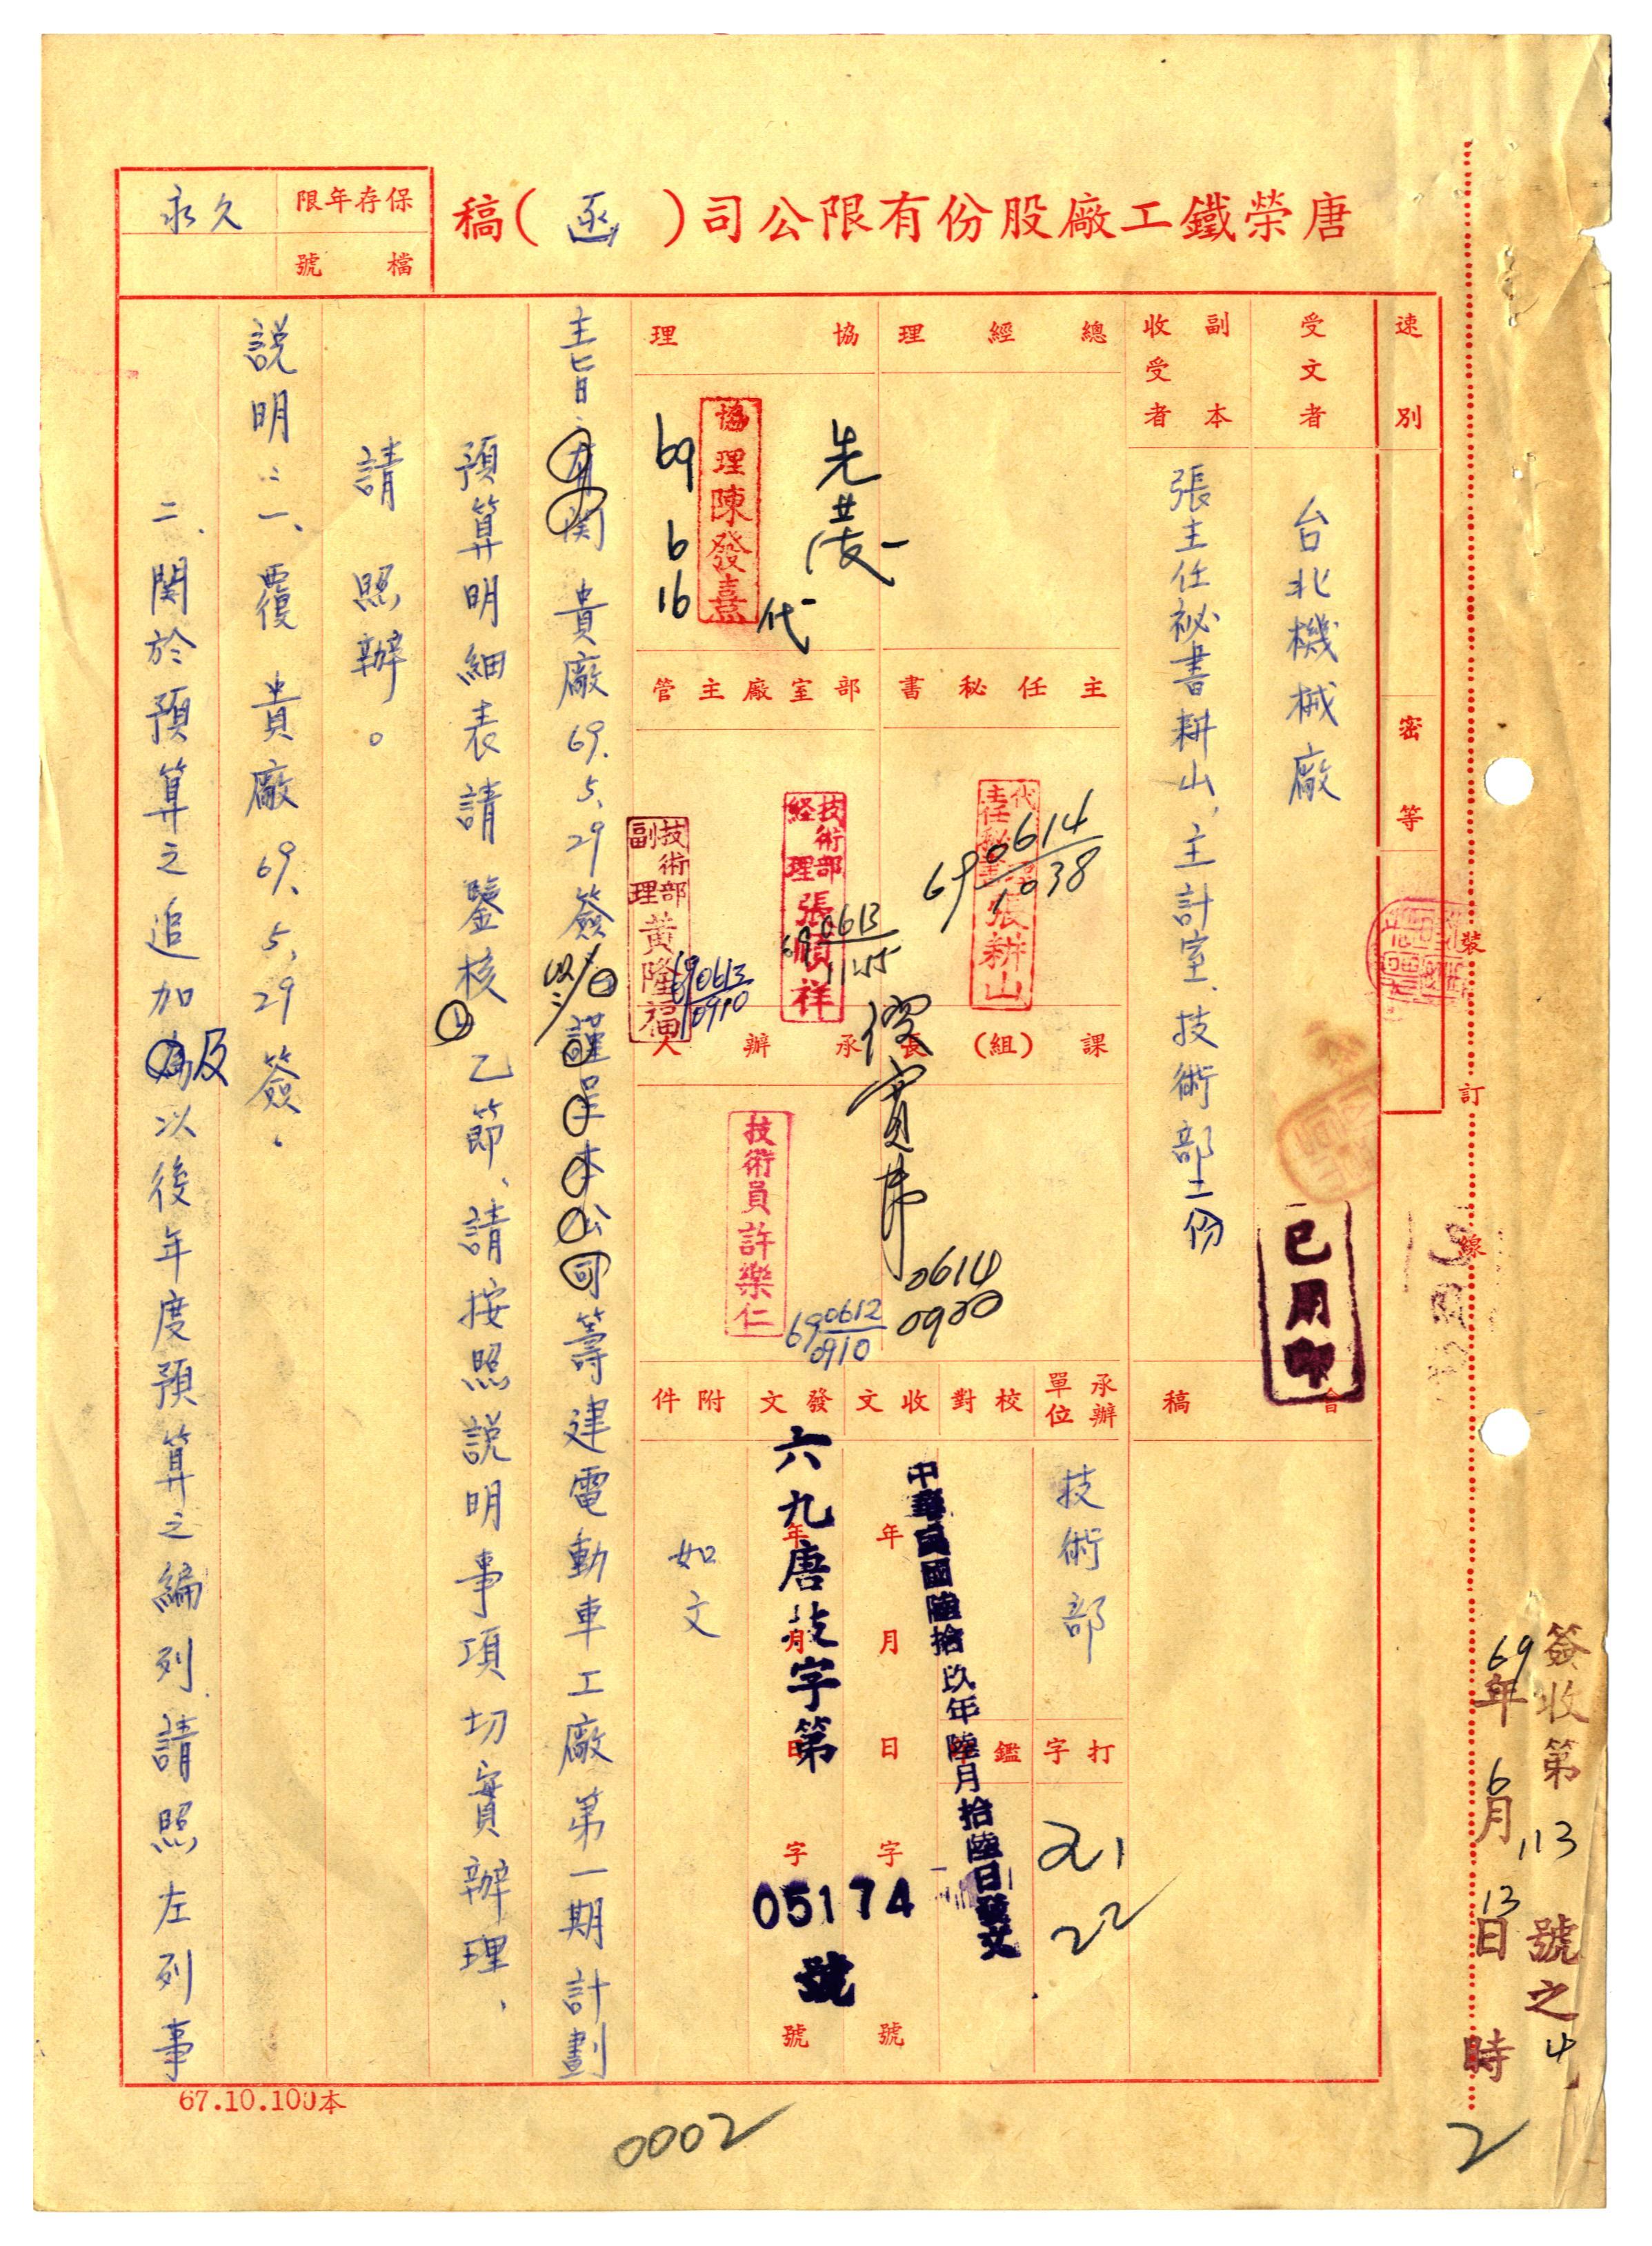 唐榮鐵工廠股份有限公司(函)稿
保存年限
永久
檔號
速別
密等
受文者
台北機械廠
副本收受者
張主任祕書耕山、主計室、技術部二份
會稿
已用印
總經理
協理
先發
代
協理陳發熹
69 6 16
主任秘書
代主任秘書張耕山
69 0614 1038
部室廠主管
技術部經理張順祥
69 0613 1145
技術部副理黃隆福
69 0613 0910
課(組)長
0614 0920
承辦人
技術員許樂仁
69 0612 0910
承辦單位
技術部
打字
校對
鑑
收文
年月日
字號
發文
年月日
字號
附件
如文
中華民國陸拾玖年陸月拾陸日發文
六九唐技字第
05174
號
主旨:有関 貴廠69.5.29簽以謹呈本公司籌建電動車工廠第一期計劃
預算明細表請 鑒核乙節,請按照説明事項切實辦理,
請 照辦。
説明:一、覆 貴廠69.5.29簽。
二、関於預算之追加為及以後年度預算之編列請照左列事
裝訂線
簽收第113號之4
69年6月13日時
67.10.100本
0002
2